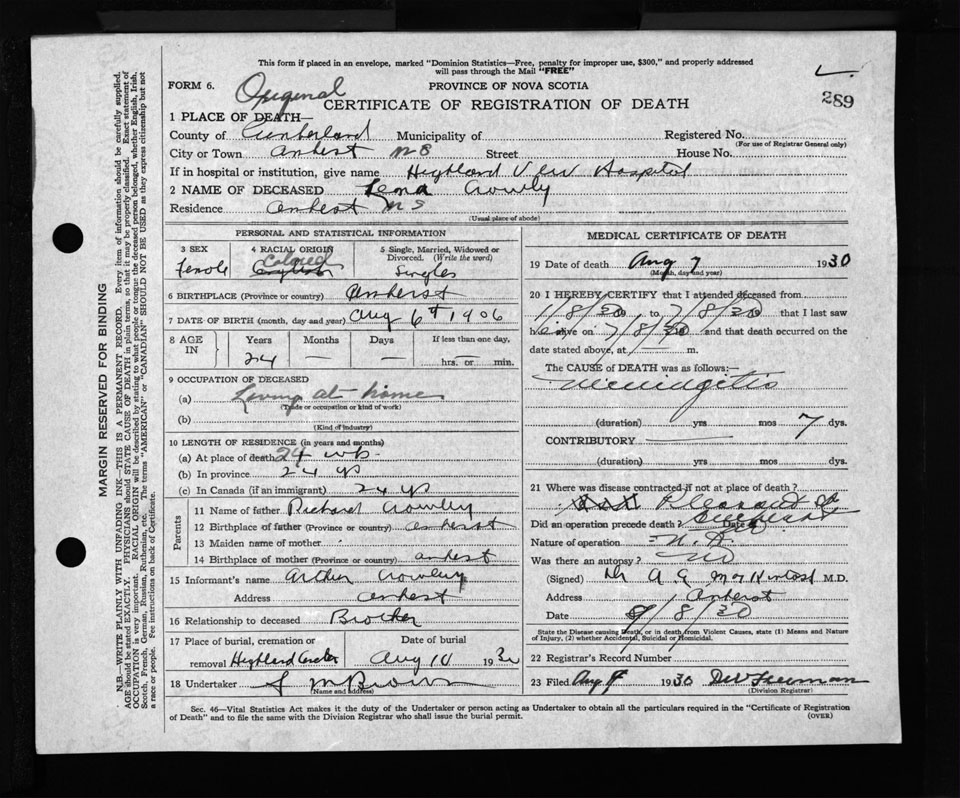 This form if placed in an envelope, marked "Dominion Statistics—Free, penalty for improper use, $300," and properly addressed
will pass through the Mail "FREE"
FORM 6. Original PROVINCE OF NOVA SCOTIA
289
CERTIFICATE OF REGISTRATION OF DEATH
1 PLACE OF DEATH—
County of Cumberland Municipality of Registered No.
(For use of Registrar General only)
City or Town Amherst N S Street House No.
If in hospital or institution, give name Highland View Hospital
2 NAME OF DECEASED Lena Crowly
Residence Amherst N S
(Usual place of abode)
PERSONAL AND STATISTICAL INFORMATION
3 SEX 4 RACIAL ORIGIN 5 Single, Married, Widowed or
Divorced. (Write the word)
Colored
Female English Single
6 BIRTHPLACE (Province or country) Amherst
7 DATE OF BIRTH (month, day and year) Aug 6th 1906
8 AGE IN Years Months Days If less than one day,
24 — — hrs. or min.
9 OCCUPATION OF DECEASED
(a) Living at home
(Trade or occupation or kind of work)
(b)
(Kind of industry)
10 LENGTH OF RESIDENCE (in years and months)
(a) At place of death 24
(b) In province 24 yrs
(c) In Canada (if an immigrant) 24 yrs
Parents
11 Name of father Richard Crowley
12 Birthplace of father (Province or country) Amherst
13 Maiden name of mother
14 Birthplace of mother (Province or country) Amherst
15 Informant's name Crowley
Address Amherst
16 Relationship to deceased Brother
17 Place of burial, cremation or Date of burial
removal Highland Aug 10 1930
18 Undertaker Brown
(Name and address)
MEDICAL CERTIFICATE OF DEATH
19 Date of death Aug 7 1930
(Month, day and year)
20 I HEREBY CERTIFY that I attended deceased from
1/8/30, to 7/8/30 that I last saw
h alive on 7/8/30 and that death occurred on
date stated above, at m.
The CAUSE of DEATH was as follows:—
Meningitis
(duration) yrs mos 7 dys.
CONTRIBUTORY
(duration) yrs mos dys.
21 Where was disease contracted if not at place of death?
Pleasant
Did an operation precede death? Date of
Nature of operation
Was there an autopsy? No
(Signed) Dr A E M.D.
Address Amherst
Date 9/8/30
State the Disease causing Death, or in death from Violent Causes, state (1) Means and Nature
of Injury, (2) whether Accidental, Suicidal or Homicidal.
22 Registrar's Record Number
23 Filed Aug 9 1930
(Division Registrar)
Sec. 46—Vital Statistics Act makes it the duty of the Undertaker or person acting as Undertaker to obtain all the particulars required in the "Certificate of Registration
of Death" and to file the same with the Division Registrar who shall issue the burial permit. (OVER)
MARGIN RESERVED FOR BINDING
N.B.—WRITE PLAINLY WITH UNFADING INK—THIS IS A PERMANENT RECORD. Every item of information should be carefully supplied.
AGE should be stated EXACTLY. PHYSICIANS should STATE CAUSE OF DEATH in plain terms, so that it may be properly classified. Exact statement of
OCCUPATION is very important. RACIAL ORIGIN will be described by stating to what people or tongue the deceased person belonged, whether English, Irish,
Scotch, French, German, Russian, Ruthenian, etc. The terms "AMERICAN" or "CANADIAN" SHOULD NOT BE USED as they express citizenship but not
a race or people. Fee instructions on back of Certificate.